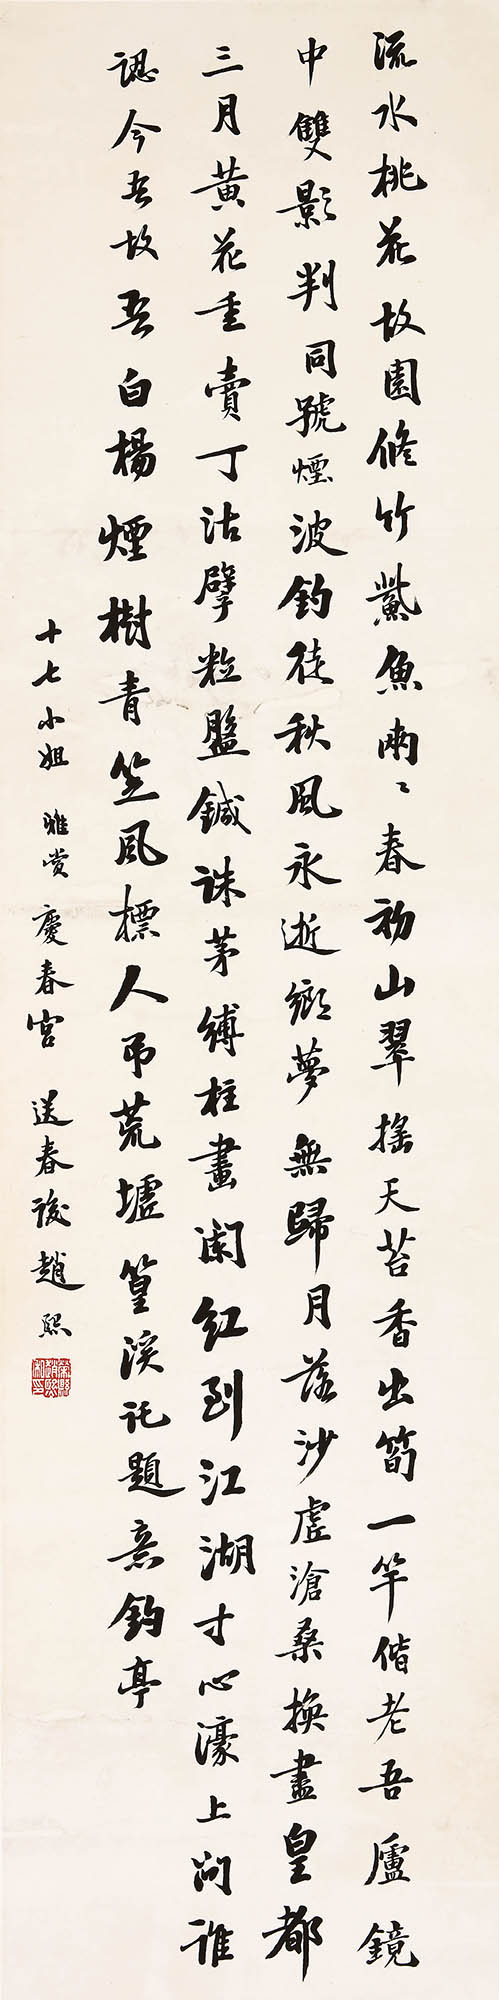 流水桃花故園脩竹鱖魚雨〻春初山翠搖天苔香出筍一竿偕老吾廬鏡
中雙影判同號煙波釣徒秋風永逝鄉夢無歸月落沙虛滄桑換盡皇都
三月黃花重賣丁沽擘粒盤鍼誅茅縛柱畫闌紅到江湖寸心濠上問誰
認今吾故吾白楊煙樹青笠風標人帀荒墟篁溪託題意釣亭
十七小姐 雅賞 慶春宮 送春後趙熙